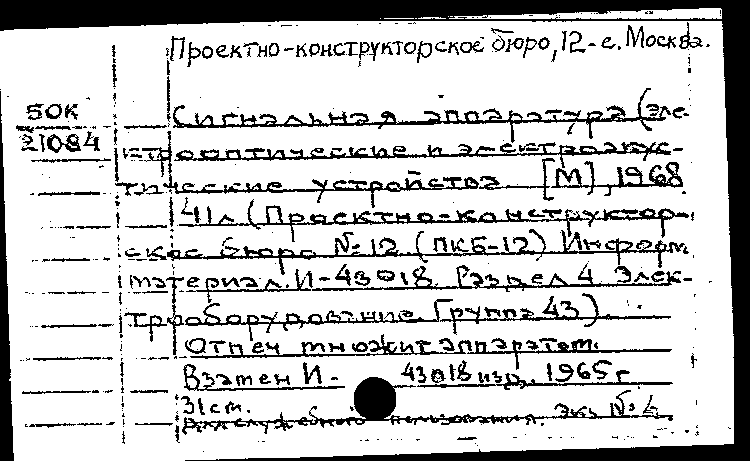 Проектно-конструкторское бюро, 12-е. Москва.
БОК
21084
Сигнальная аппаратура (Эле-
ктрооптические и электроакус-
тические устройства [М], 1968
41л (Проектно-конструктор-
ское бюро №12 (ПКБ-12) Информ
материал. И-43018. Раздел 4 Элек-
трооборудование. Группа 43).
Отпеч множит аппаратом.
Взамен И- 43018 изд. 1965г
31см.
Для служебного пользования. Экз №4